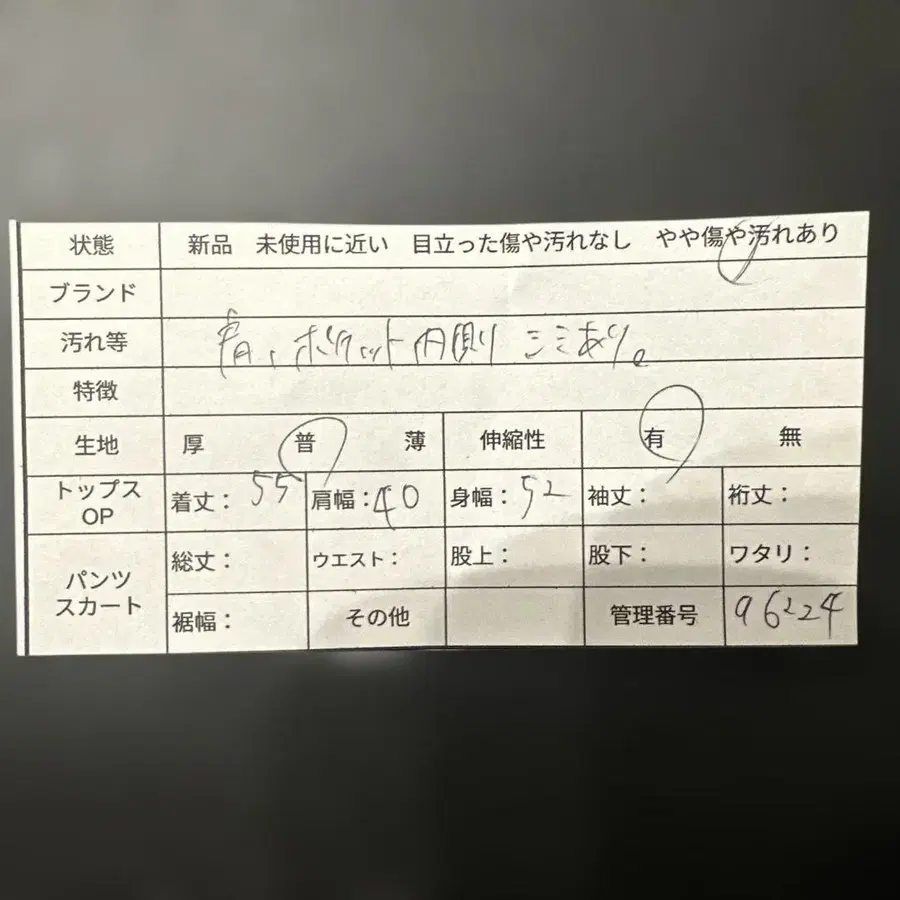 状態 新品 未使用に近い 目立った傷や汚れなし やや傷や汚れあり
ブランド
汚れ等 肩、ポケット内側 シミあり。
特徴
生地 厚 普 薄 伸縮性 有 無
トップス OP 着丈：55 肩幅：40 身幅：52 袖丈： 裄丈：
パンツ スカート 総丈： ウエスト： 股上： 股下： ワタリ：
裾幅： その他 管理番号 96224